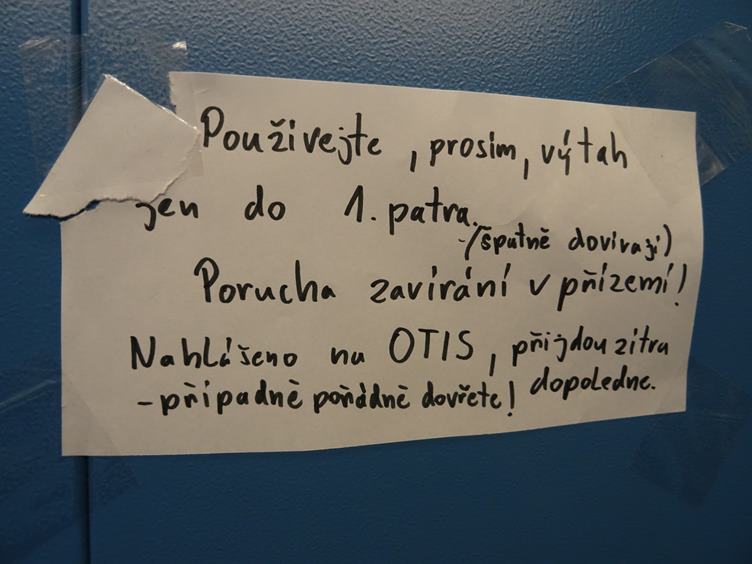 Používejte, prosím, výtah
jen do 1. patra.
(špatně dovírají)
Porucha zavírání v přízemí!
Nahlášeno na OTIS, přijdou zítra
dopoledne.
- případně pořádně dovřete!